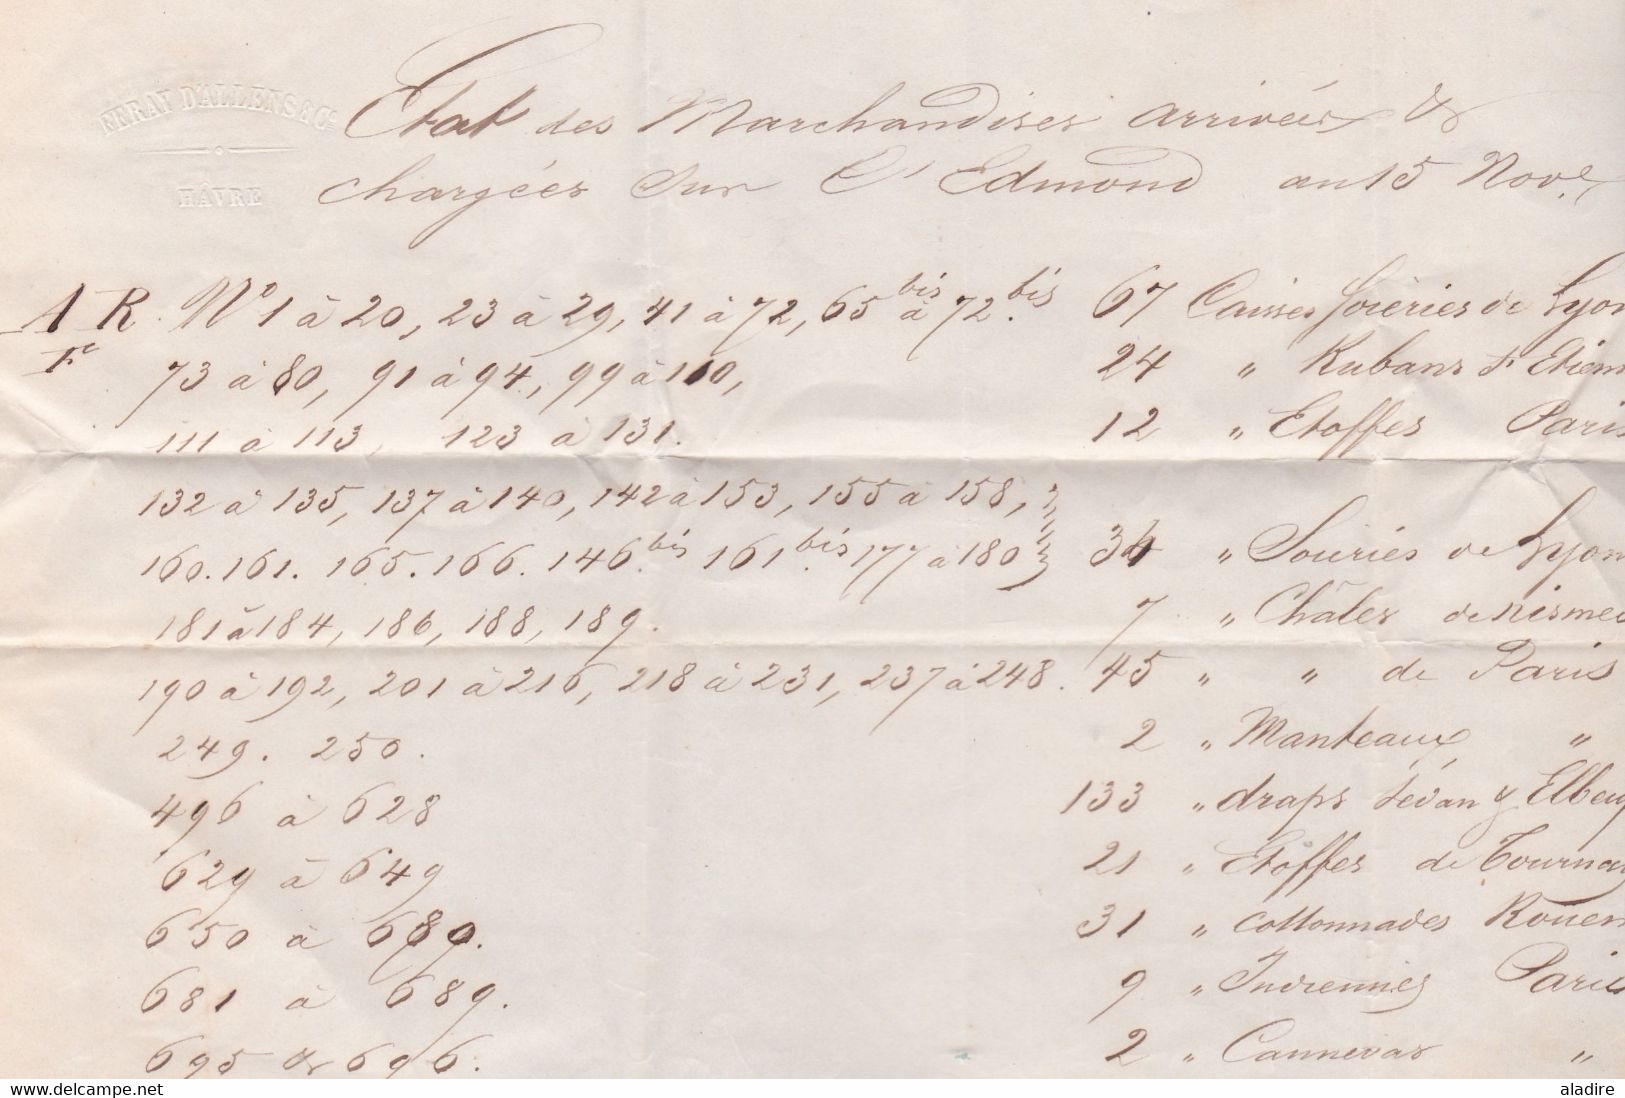 FERAY D'ALLENS & Cie
HÂVRE
Etat des Marchandises arrivées &
chargées sur l'Edmond au 15 Nov.e
A R. No 1 à 20, 23 à 29, 41 à 72, 65 bis à 72 bis. 67 Caisses Soiéries de Lyon
Fc 73 à 80, 91 à 94, 99 à 110, 24 " Rubans St Etienn
111 à 113, 123 à 131. 12 " Etoffes Paris
132 à 135, 137 à 140, 142 à 153, 155 à 158,
160. 161. 165. 166. 146 bis. 161 bis. 177 à 180 34 " Souriés de Lyon
181 à 184, 186, 188, 189. 7 " Châles de Nismes
190 à 192, 201 à 216, 218 à 231, 237 à 248. 45 " " de Paris
249. 250. 2 " Manteaux "
496 à 628 133 " draps Sédan & Elbeu
629 à 649 21 " Etoffes de Tournay
650 à 680. 31 " cottonnades Rouen
681 à 689. 9 " Indiennes Paris
695 & 696. 2 " Cannevas "
www.delcampe.net aladire